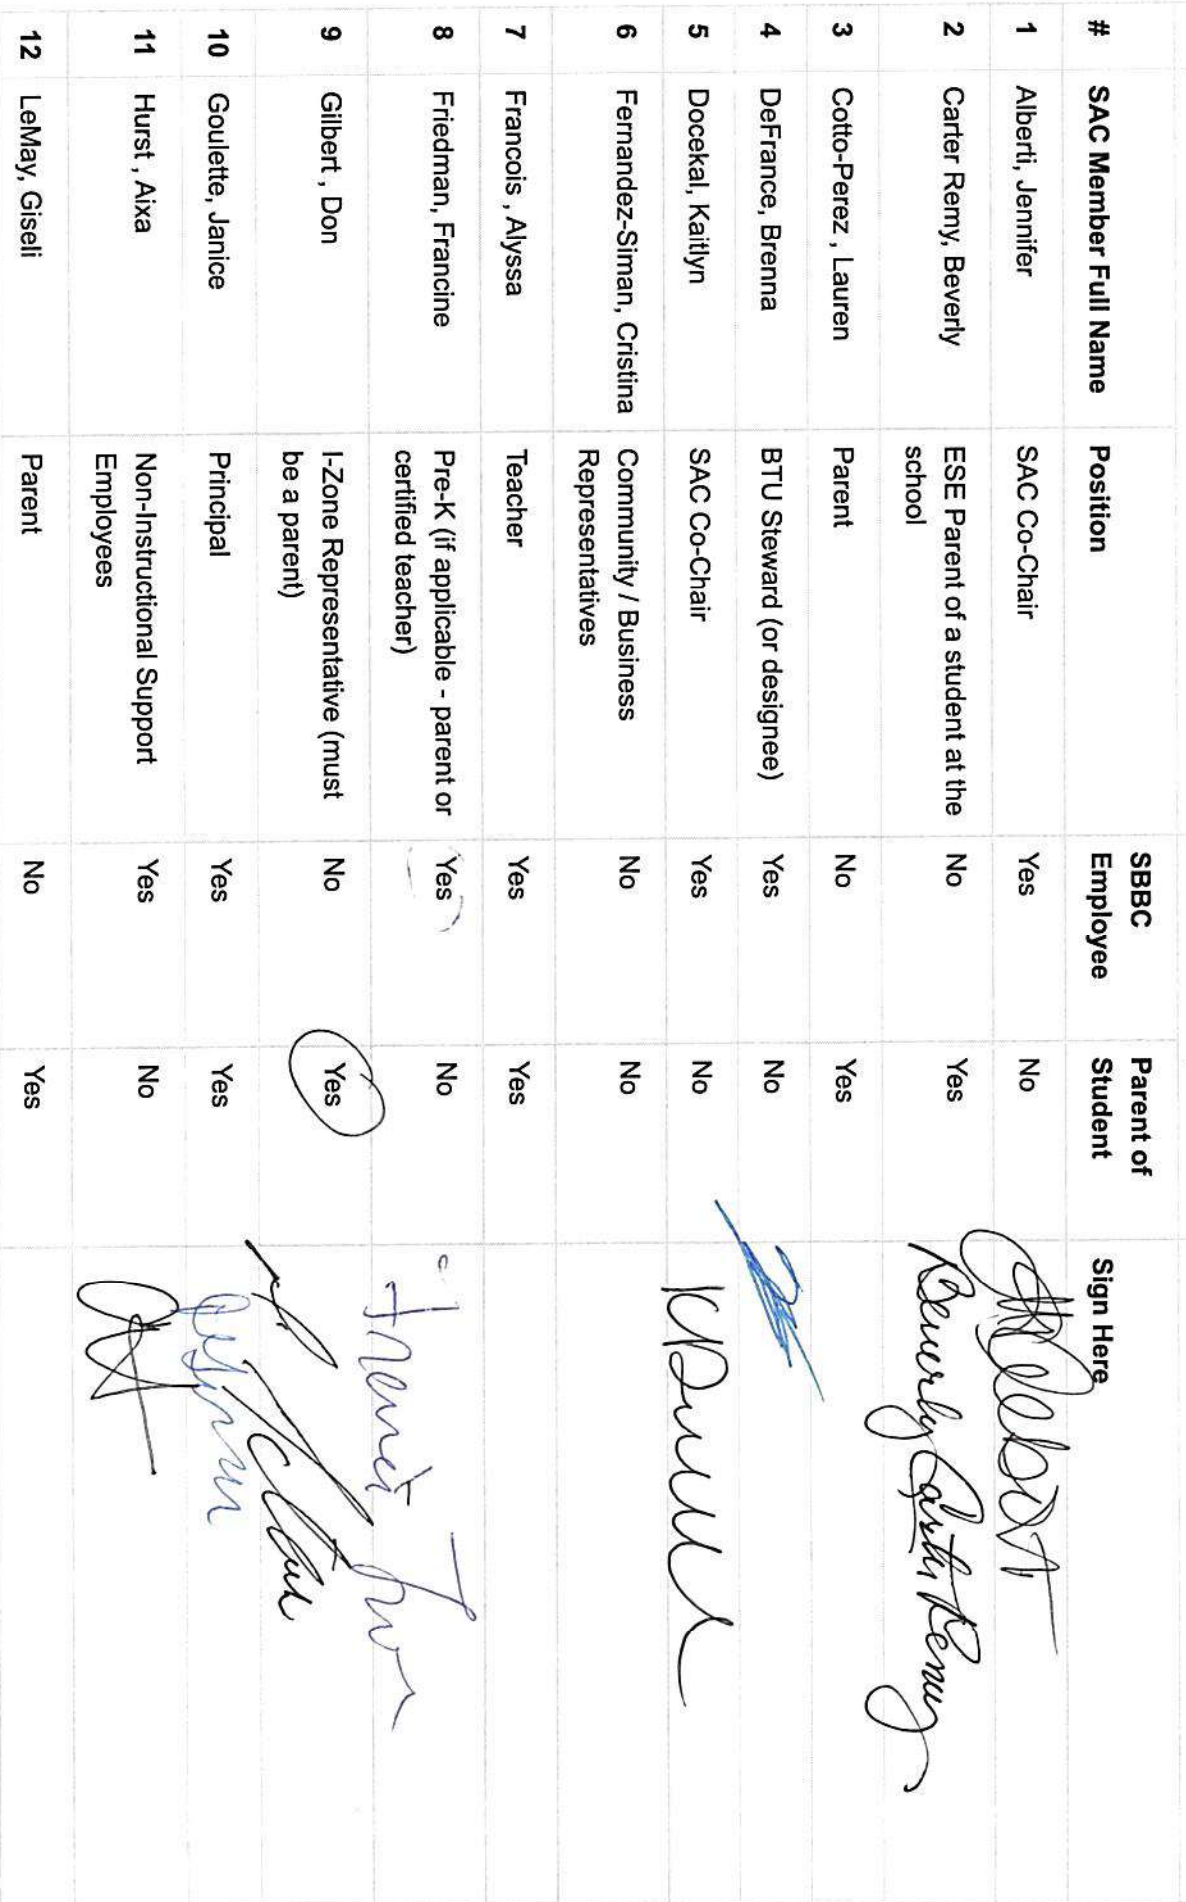 # SAC Member Full Name Position SBBC Employee Parent of Student Sign Here
1 Alberti, Jennifer SAC Co-Chair Yes No
2 Carter Remy, Beverly ESE Parent of a student at the school No Yes Beverly Carter Remy
3 Cotto-Perez , Lauren Parent No Yes
4 DeFrance, Brenna BTU Steward (or designee) Yes No
5 Docekal, Kaitlyn SAC Co-Chair Yes No
6 Fernandez-Siman, Cristina Community / Business Representatives No No
7 Francois , Alyssa Teacher Yes Yes
8 Friedman, Francine Pre-K (if applicable - parent or certified teacher) Yes No
9 Gilbert , Don I-Zone Representative (must be a parent) No Yes
10 Goulette, Janice Principal Yes Yes
11 Hurst , Aixa Non-Instructional Support Employees Yes No
12 LeMay, Giseli Parent No Yes